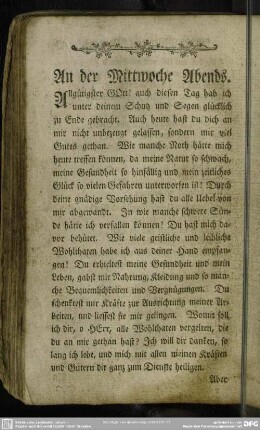 An der Mittwoche Abends.
Allgütigster GOtt! auch diesen Tag hab ich
unter deinem Schutz und Segen glücklich
zu Ende gebracht. Auch heute hast du dich an
mir nicht unbezeugt gelassen, sondern mir viel
Gutes gethan. Wie manche Noth hätte mich
heute treffen können, da meine Natur so schwach,
meine Gesundheit so hinfällig und mein zeitliches
Glück so vielen Gefahren unterworfen ist! Durch
deine gnädige Vorsehung hast du alle Uebel von
mir abgewandt. In wie manche schwere Sün-
de hätte ich verfallen können! Du hast mich da-
vor behütet. Wie viele geistliche und leibliche
Wohlthaten habe ich aus deiner Hand empfan-
gen! Du erhieltest meine Gesundheit und mein
Leben, gabst mir Nahrung, Kleidung und so man-
che Bequemlichkeiten und Vergnügungen. Du
schenktest mir Kräfte zur Ausrichtung meiner Ar-
beiten, und liessest sie mir gelingen. Womit soll
ich dir, o HErr, alle Wohlthaten vergelten, die
du an mir gethan hast? Ich will dir danken, so
lang ich lebe, und mich mit allen meinen Kräften
und Gütern dir ganz zum Dienste heiligen.
Aber